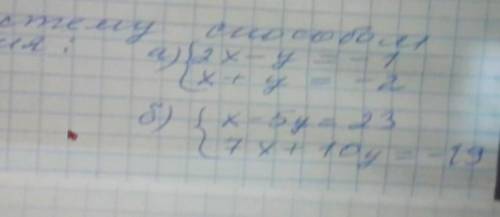 стему способом
ия:
а) { 2x - y = -1
x + y = -2
б) { x - 5y = 23
7x + 10y = -19